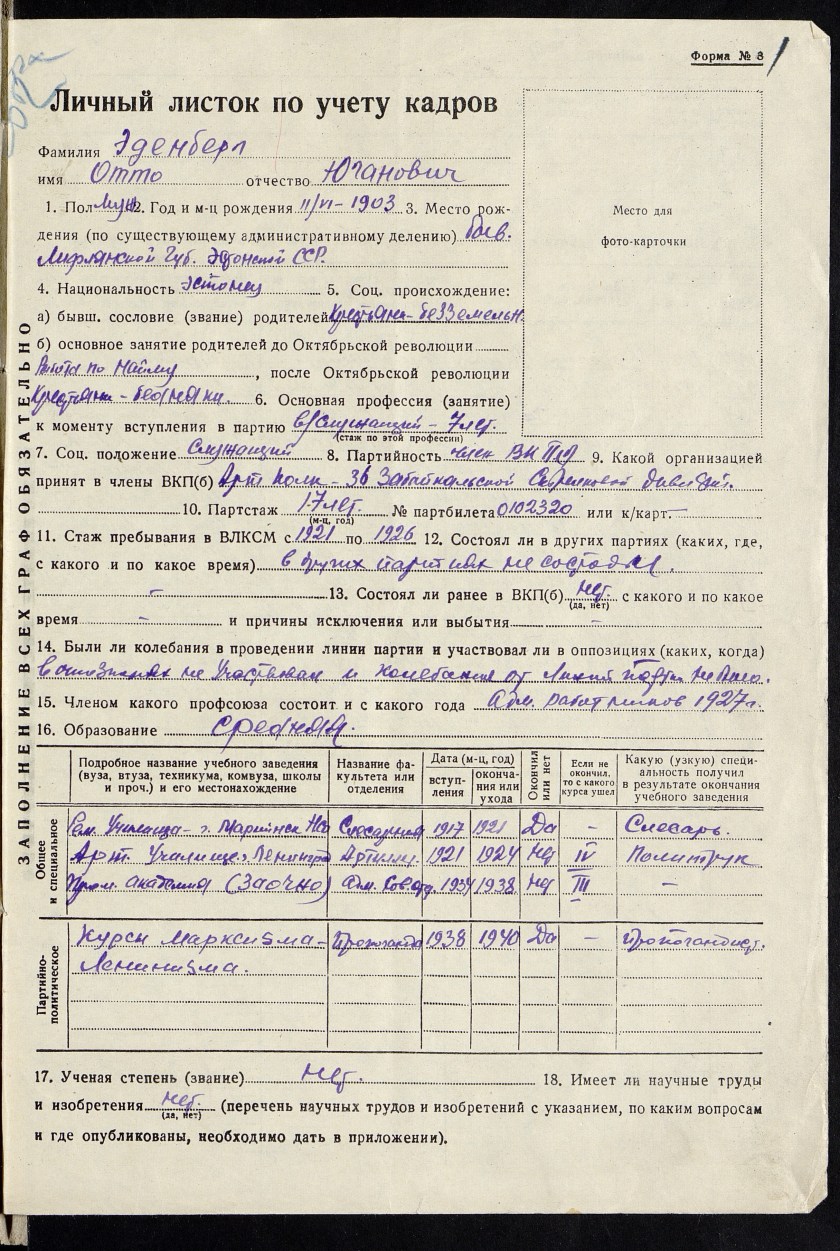 Форма № 3
Личный листок по учету кадров
Фамилия Эденберг
имя Отто отчество Юганович
1. Пол Муж 2. Год и м-ц рождения 11/VI-1903 3. Место рож-
дения (по существующему административному делению) быв.
Лифлянской Губ. Эстонской ССР.
Место для
фото-карточки
4. Национальность Эстонец 5. Соц. происхождение:
а) бывш. сословие (звание) родителей Крестьяне-безземельн.
б) основное занятие родителей до Октябрьской революции
Работа по Найму, после Октябрьской революции
Крестьяне-бедняки. 6. Основная профессия (занятие)
к моменту вступления в партию в/служащий - 7 лет.
(стаж по этой профессии)
7. Соц. положение Служащий 8. Партийность член ВКП(б) 9. Какой организацией
принят в члены ВКП(б) Арт Полк - 36 Забайкальской Стрелковой дивизии.
10. Партстаж 17 лет. № партбилета 0102320 или к/карт. -
(м-ц, год)
11. Стаж пребывания в ВЛКСМ с 1921 по 1926 12. Состоял ли в других партиях (каких, где,
с какого и по какое время) в других партиях не состоял.
- 13. Состоял ли ранее в ВКП(б) нет. с какого и по какое
(да, нет)
время - и причины исключения или выбытия -
14. Были ли колебания в проведении линии партии и участвовал ли в оппозициях (каких, когда)
в оппозициях не Участвовал и Колебания от Линии партии не было.
15. Членом какого профсоюза состоит и с какого года Адм. работников 1927 г.
16. Образование Средняя.
ЗАПОЛНЕНИЕ ВСЕХ ГРАФ ОБЯЗАТЕЛЬНО
Подробное название учебного заведения (вуза, втуза, техникума, комвуза, школы и проч.) и его местонахождение
Название факультета или отделения
Дата (м-ц, год)
вступления
окончания или ухода
Окончил или нет
Если не окончил, то с какого курса ушел
Какую (узкую) специальность получил в результате окончания учебного заведения
Общее и специальное
Рем. Училище - г. Мариинск Слесарная 1917 1921 Да - Слесарь.
Арт. Училище г. Ленинград Артилл. 1921 1924 Нет IV Политрук
Пром. Академия (Заочно) Адм. 1934 1938 Нет III -
Партийно-политическое
Курсы Марксизма- Пропоганда 1938 1940 Да - Пропогандист.
Ленинизма.
17. Ученая степень (звание) Нет. 18. Имеет ли научные труды
и изобретения Нет. (перечень научных трудов и изобретений с указанием, по каким вопросам
(да, нет)
и где опубликованы, необходимо дать в приложении).